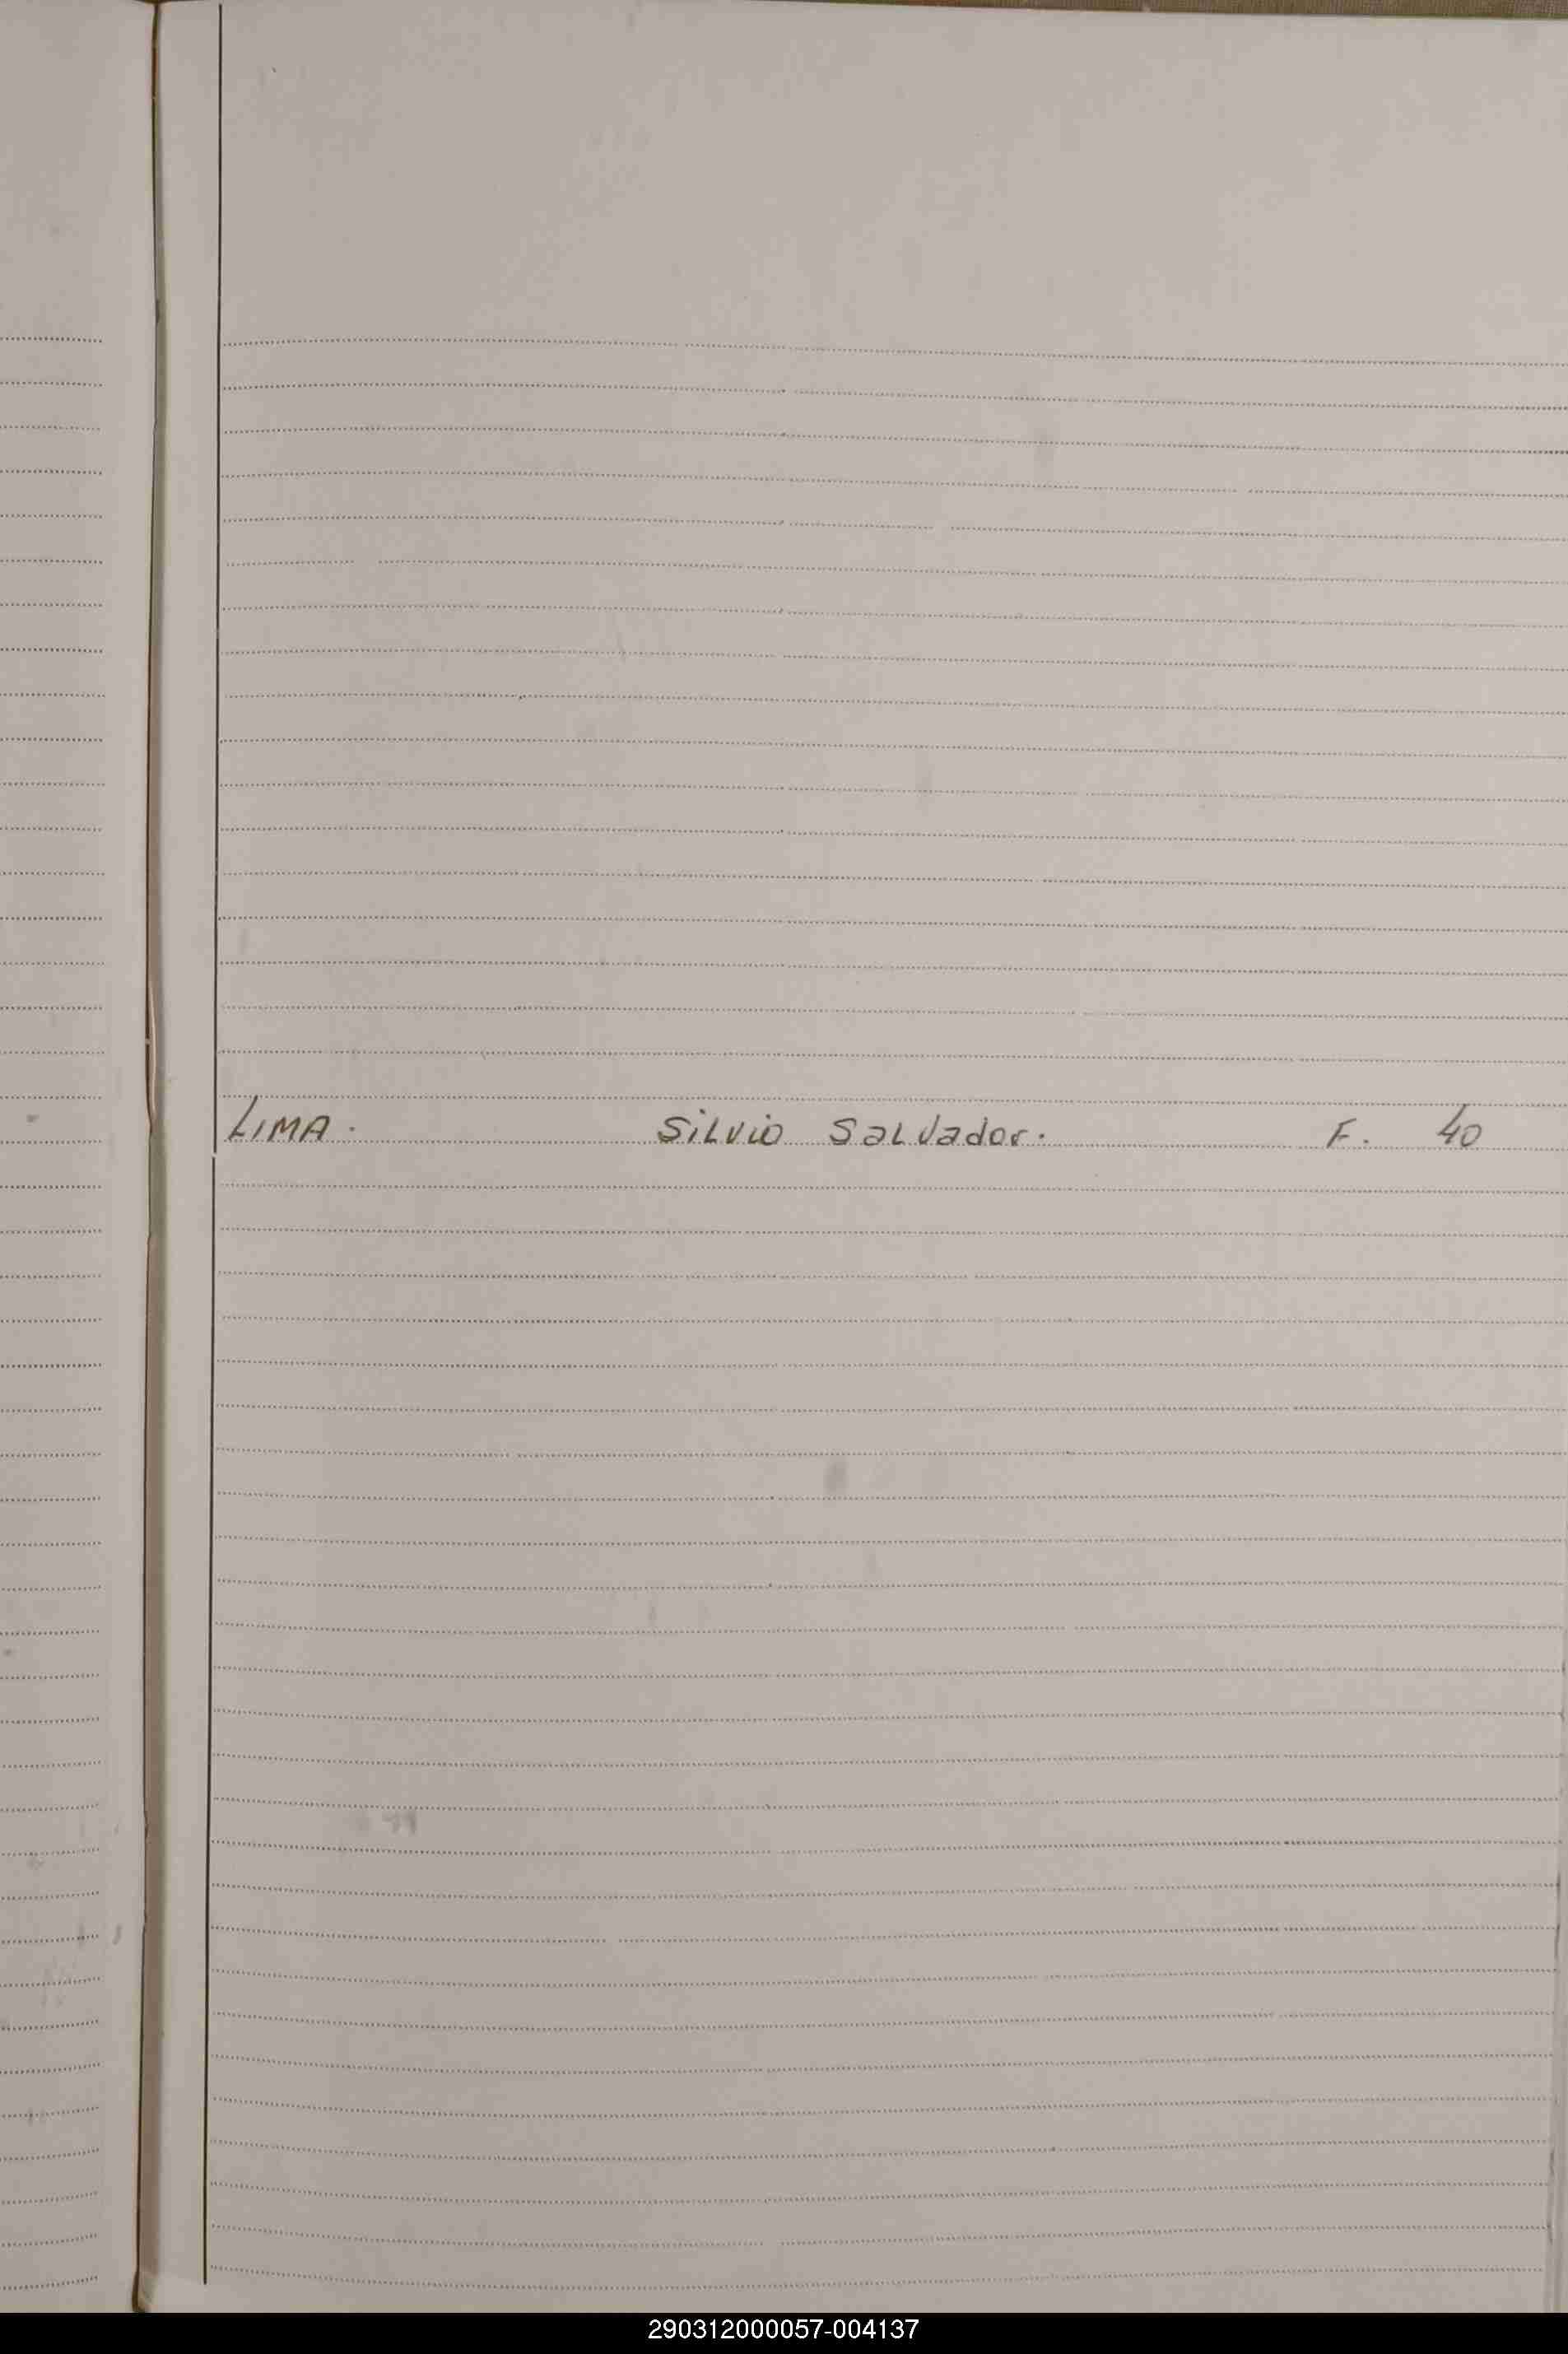 LIMA. Silvio Salvador. F. 40
290312000057-004137